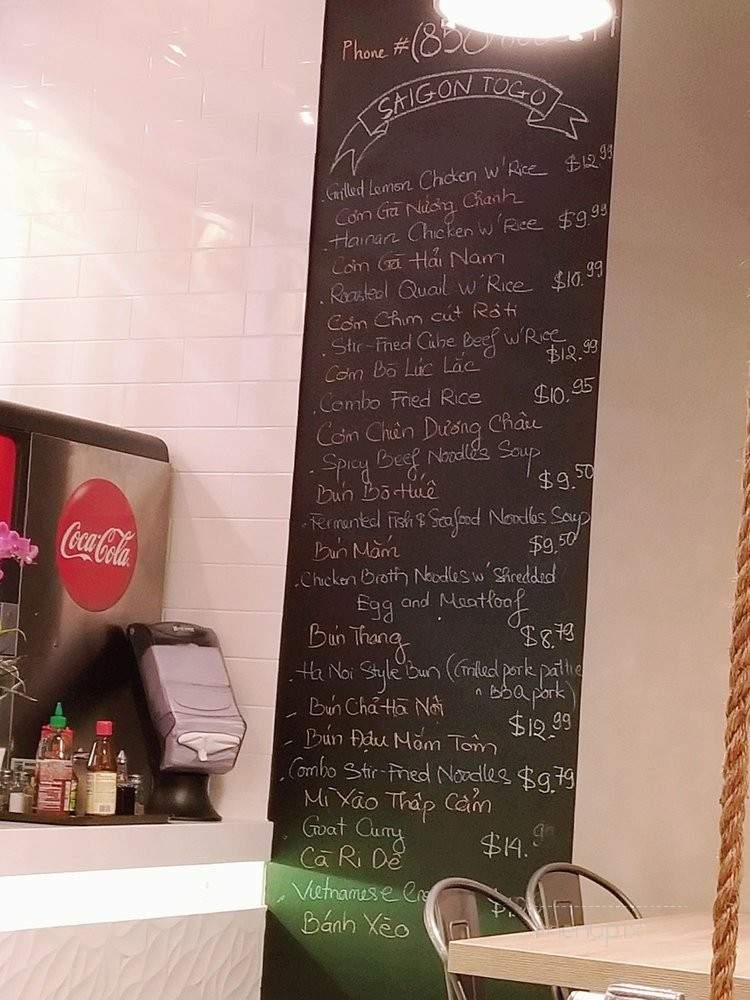 Phone # (850
SAIGON TOGO
. Grilled Lemon Chicken w' Rice $12.99
Cơm Gà Nướng Chanh
. Hainan Chicken w' Rice $9.99
Cơm Gà Hải Nam
. Roasted Quail w' Rice $10.99
Cơm Chim cút Rôti
. Stir-Fried Cube Beef w' Rice
$12.99
Cơm Bò Lúc Lắc
. Combo Fried Rice $10.95
Cơm Chiên Dương Châu
. Spicy Beef Noodles Soup
Bún Bò Huế $9.50
. Fermented Fish & Seafood Noodles Soup
Bún Mắm $9.50
. Chicken Broth Noodles w' shredded
Egg and Meatloaf
Bún Thang $8.79
. Ha Noi Style Bun (Grilled pork pattie
n BBQ pork)
- Bún Chả Hà Nội $12.99
- Bún Đậu Mắm Tôm
. Combo Stir-Fried Noodles $9.79
Mì Xào Thập Cẩm
Goat Curry
$14.
Cà Ri Dê
. Vietnamese
Bánh Xèo
Coca-Cola